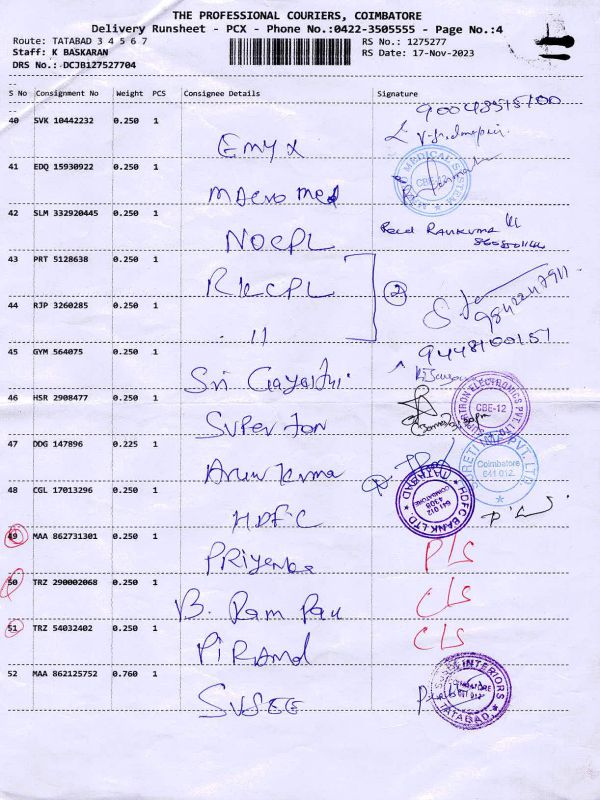 THE PROFESSIONAL COURIERS, COIMBATORE
Delivery Runsheet - PCX - Phone No.:0422-3505555 - Page No.:4
Route: TATABAD 3 4 5 6 7
RS No.: 1275277
Staff: K BASKARAN
RS Date: 17-Nov-2023
DRS No.: DCJB127527704
S No Consignment No Weight PCS Consignee Details Signature
40 SVK 10442232 0.250 1
Emyx
41 EDQ 15930922 0.250 1
MEDICAL SYSTEM
CBE-12
Macro med
42 SLM 332920445 0.250 1
NOCPL
43 PRT 5128638 0.250 1
RKCPL
2
44 RJP 3260285 0.250 1
11
9842247911
45 GYM 564075 0.250 1
9448100151
Sri Gayatri
46 HSR 2908477 0.250 1
ELECTRONICS PVT. LTD
CBE-12
Superton
47 DDG 147896 0.225 1
PVT. LTD
Coimbatore
641 012.
Arun Kumar
48 CGL 17013296 0.250 1
HDFC BANK LTD.
TATABAD
641 012
HDFC
49 MAA 862731301 0.250 1 P/S
Priyanka
50 TRZ 290002068 0.250 1 C/S
B. Ram
51 TRZ 54032402 0.250 1 C/S
Piramal
52 MAA 862125752 0.760 1
INTERIORS
TATABAD.
SUSEE